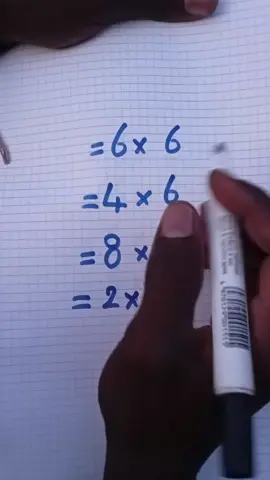 = 6 × 6
= 4 × 6
= 8 ×
= 2 ×